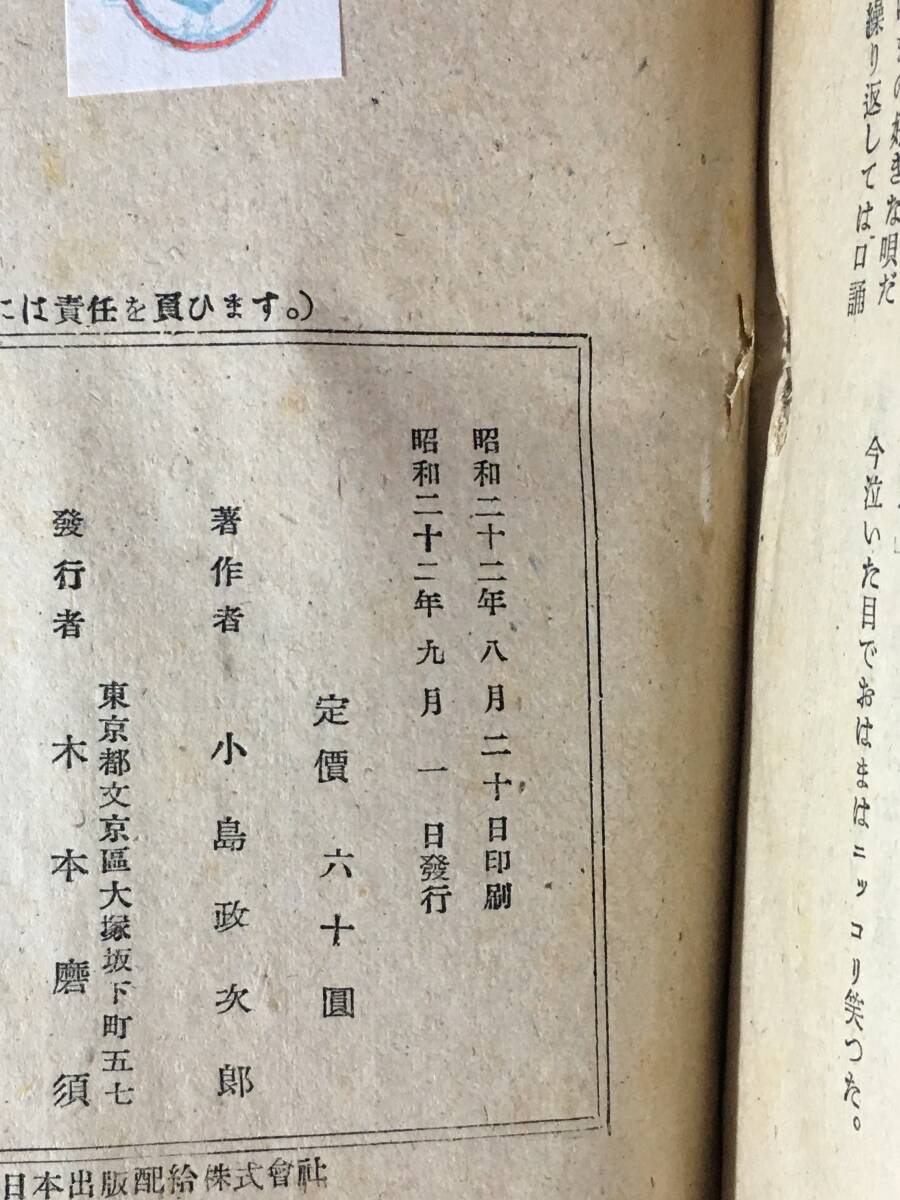 繰り返しては口誦
今泣いた目でおはまはニッコリ笑つた。
には責任を負ひます。)
昭和二十二年八月二十日印刷
昭和二十二年九月一日發行
定價 六十圓
著作者 小島政次郎
東京都文京區大塚坂下町五七
發行者 木本磨須
日本出版配給株式會社